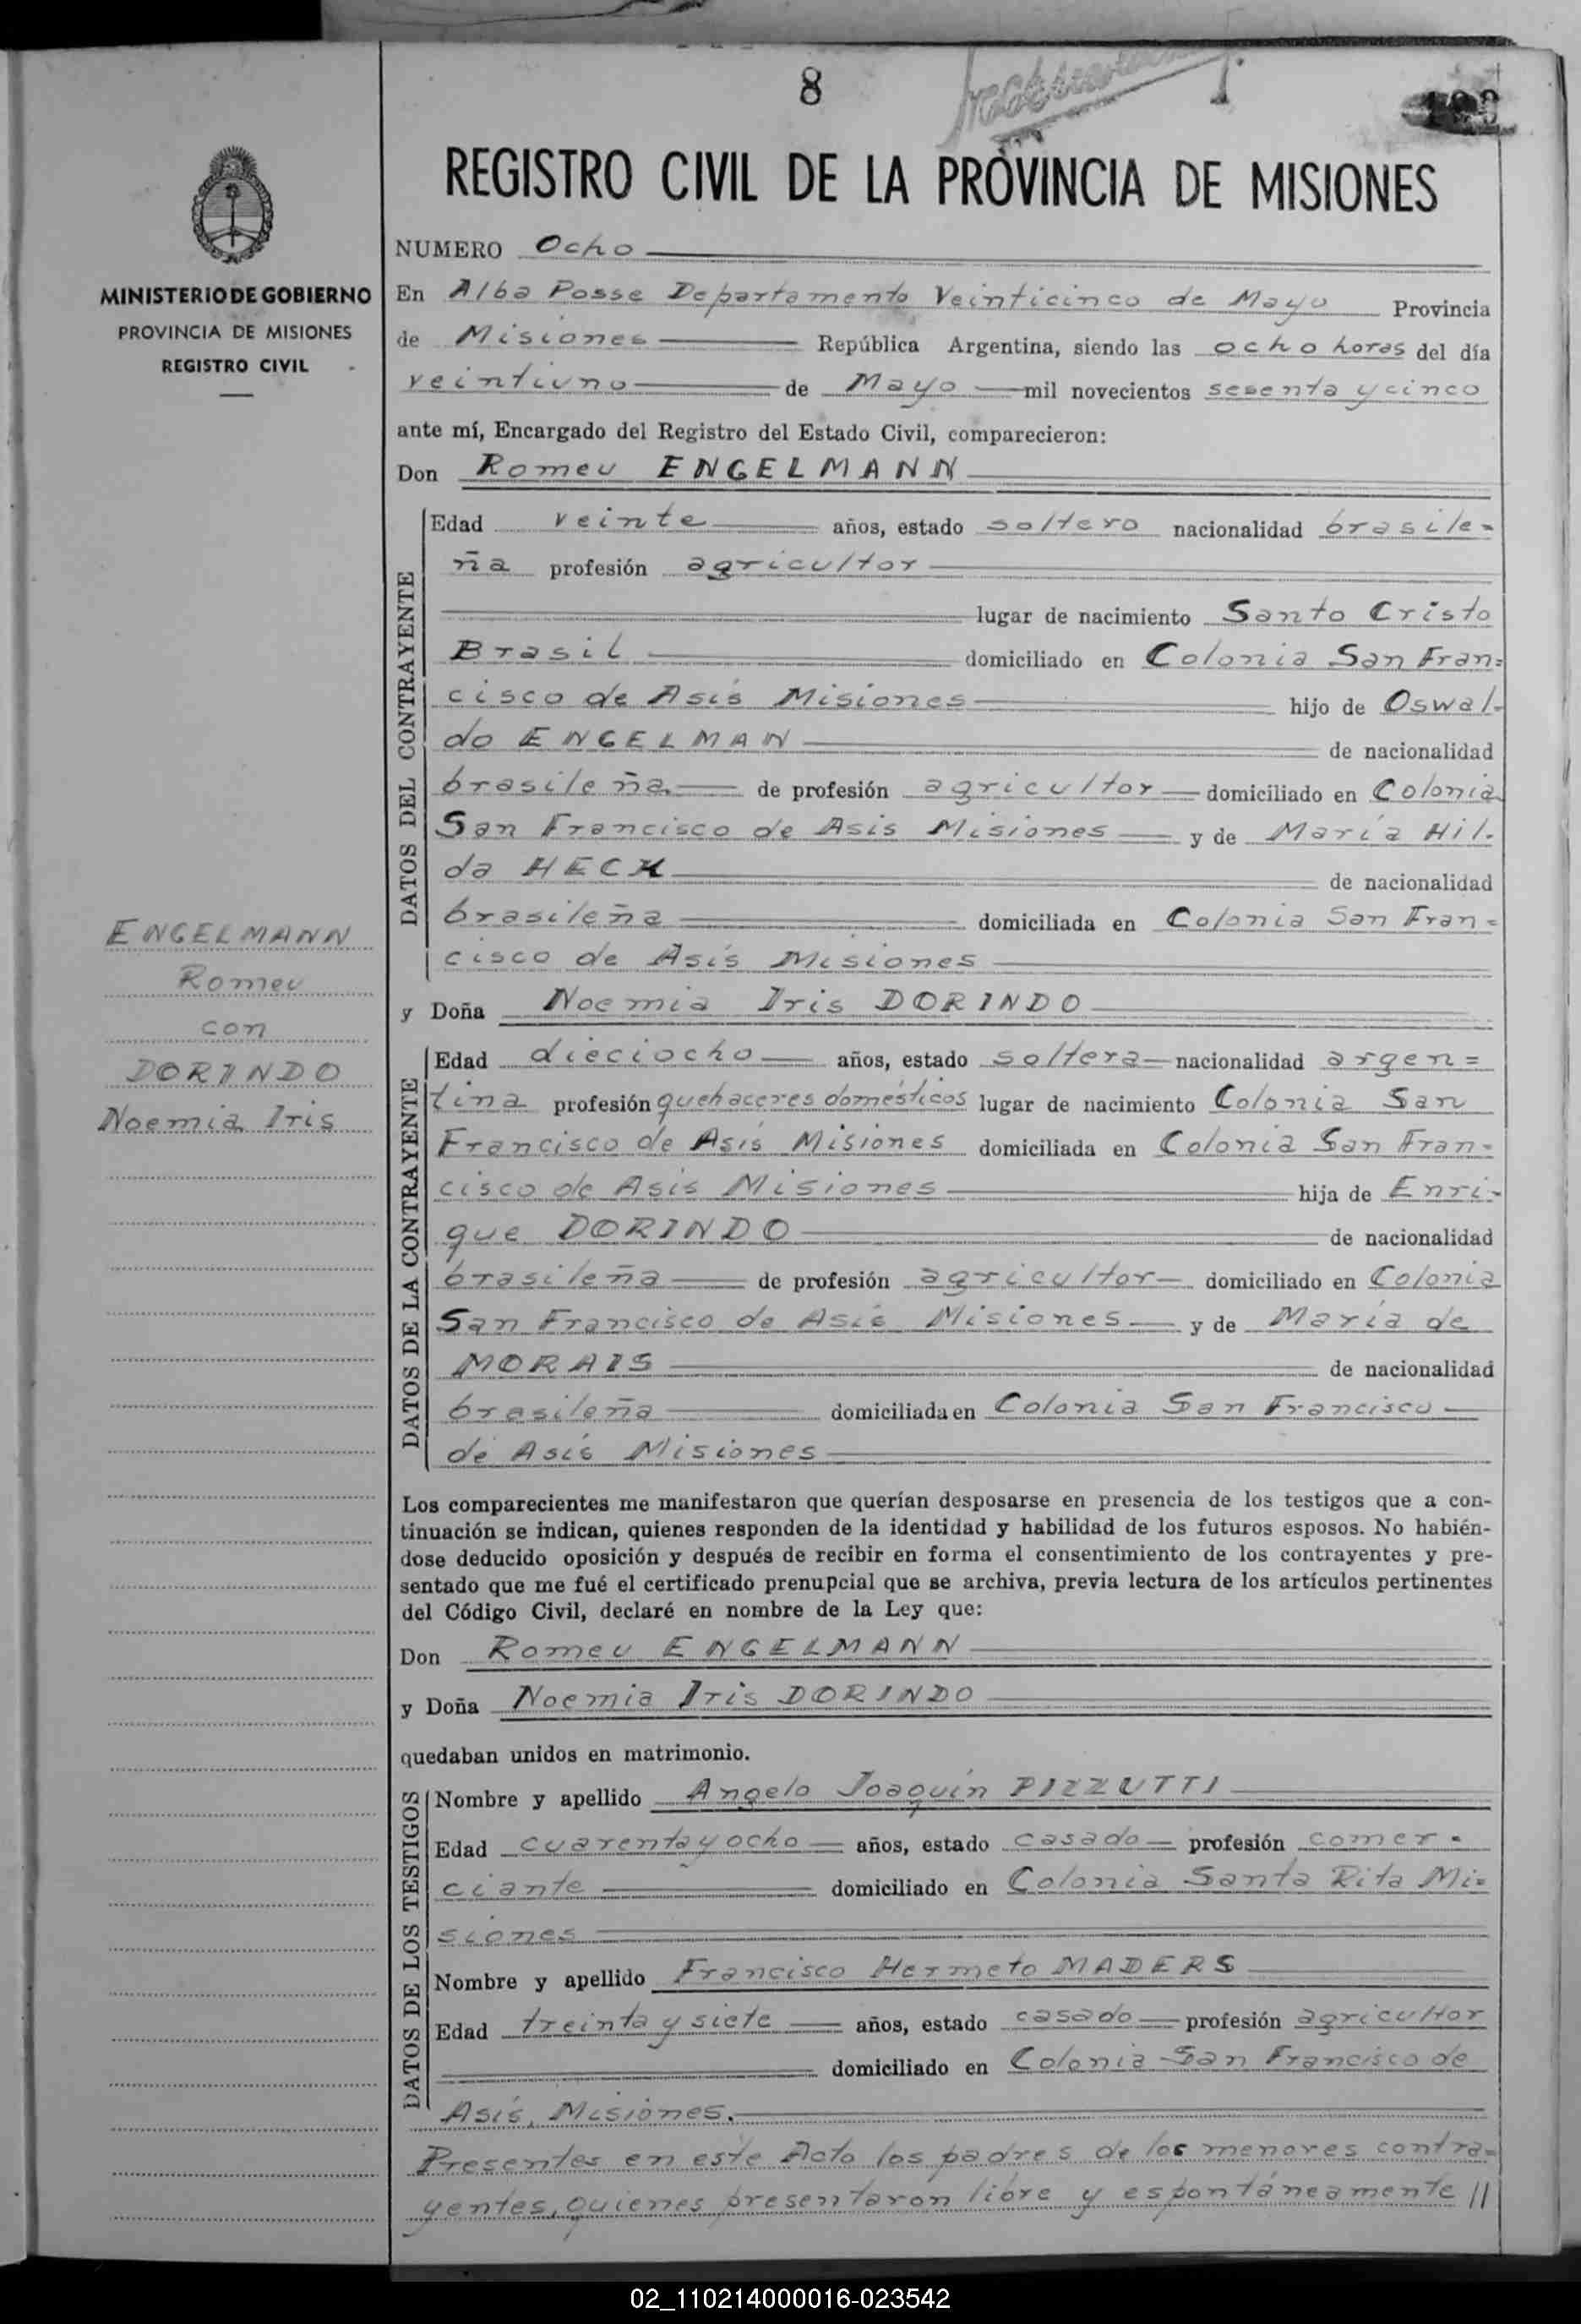 8
REGISTRO CIVIL DE LA PROVINCIA DE MISIONES
MINISTERIO DE GOBIERNO
PROVINCIA DE MISIONES
REGISTRO CIVIL
ENGELMANN
Romeu
con
DORINDO
Noemia Iris
NUMERO Ocho
En Alba Posse Departamento Veinticinco de Mayo Provincia
de Misiones República Argentina, siendo las ocho horas del día
veintiuno de Mayo mil novecientos sesenta y cinco
ante mí, Encargado del Registro del Estado Civil, comparecieron:
Don Romeu ENGELMANN
DATOS DEL CONTRAYENTE
Edad veinte años, estado soltero nacionalidad brasile=
ña profesión agricultor
lugar de nacimiento Santo Cristo
Brasil domiciliado en Colonia San Fran=
cisco de Asís Misiones hijo de Oswal-
do ENGELMAN de nacionalidad
brasileña de profesión agricultor domiciliado en Colonia
San Francisco de Asis Misiones y de María Hil-
da HECK de nacionalidad
brasileña domiciliada en Colonia San Fran=
cisco de Asís Misiones
y Doña Noemia Iris DORINDO
DATOS DE LA CONTRAYENTE
Edad dieciocho años, estado soltera nacionalidad argen=
tina profesión quehaceres domésticos lugar de nacimiento Colonia San
Francisco de Asís Misiones domiciliada en Colonia San Fran=
cisco de Asís Misiones hija de Enri-
que DORINDO de nacionalidad
brasileña de profesión agricultor domiciliado en Colonia
San Francisco de Asís Misiones y de María de
MORAIS de nacionalidad
brasileña domiciliada en Colonia San Francisco
de Asís Misiones
Los comparecientes me manifestaron que querían desposarse en presencia de los testigos que a con-
tinuación se indican, quienes responden de la identidad y habilidad de los futuros esposos. No habién-
dose deducido oposición y después de recibir en forma el consentimiento de los contrayentes y pre-
sentado que me fué el certificado prenupcial que se archiva, previa lectura de los artículos pertinentes
del Código Civil, declaré en nombre de la Ley que:
Don Romeu ENGELMANN
y Doña Noemia Iris DORINDO
quedaban unidos en matrimonio.
DATOS DE LOS TESTIGOS
Nombre y apellido Angelo Joaquín PIZZUTTI
Edad cuarenta y ocho años, estado casado profesión comer-
ciante domiciliado en Colonia Santa Rita Mi=
siones
Nombre y apellido Francisco Hermeto MADERS
Edad treinta y siete años, estado casado profesión agricultor
domiciliado en Colonia San Francisco de
Asís, Misiones.
Presentes en este Acto los padres de los menores contra=
yentes, quienes presentaron libre y espontáneamente //
02_110214000016-023542